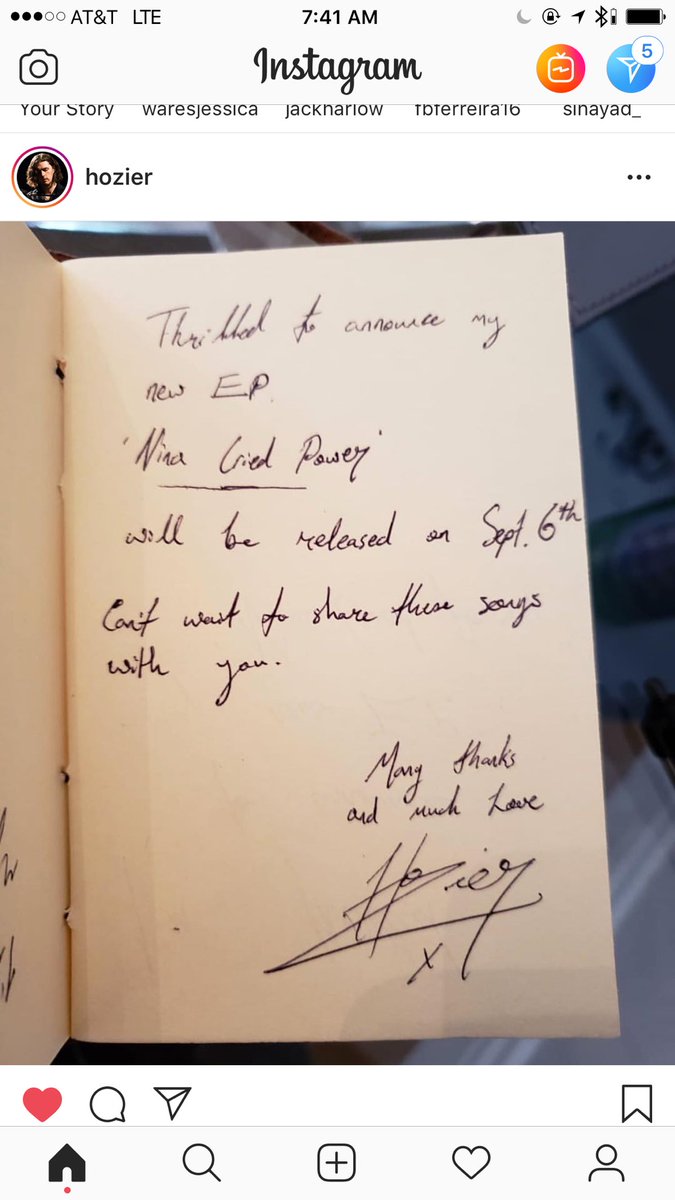 AT&T LTE 7:41 AM
Instagram 5
Your Story waresjessica jackharlow fbferreira16 sinayad_
hozier
Thrilled to announce my
new EP.
'Nina Cried Power'
will be released on Sept. 6th
Can't wait to share these songs
with you.
Many thanks
and much Love
Hozier
x